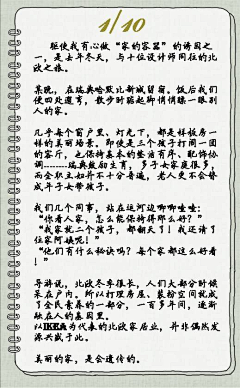 1/10
驱使我有心做“家的容器”的诱因之
一，是去年冬天，与十位设计师同往的北
欧之旅。
某晚，在瑞典哈默比新城留宿。饭后我们
便四处遛弯，散步时踮起脚悄悄瞟一眼别
人的家。
几乎每个窗户里、灯光下，都是样板房一
样的美丽场景。即使是三个孩子打闹一团
的客厅，也保持基本的整洁有序、配饰协
调--------瑞典鼓励生育，多子女家庭很多，
而全职主妇并不十分普遍，老人更不会替
成年子女带孩子。
我们几个同事，站在运河边唧唧喳喳：
“你看人家，怎么能保持得那么好？”
“我家就二个孩子，都翻天了！我还请了
住家阿姨呢！”
“他们有什么秘诀吗？每个家都这么好看
！”
导游说，北欧冬季很长，人们大部分时候
呆在户内。所以打理房屋、装扮空间就成
了全民音养的一部分，一百多年间，逐渐
融在人的基因里。
以IKEA为代表的北欧家居业，并非偶然发
源兴盛于此。
美丽的家，是会遗传的。